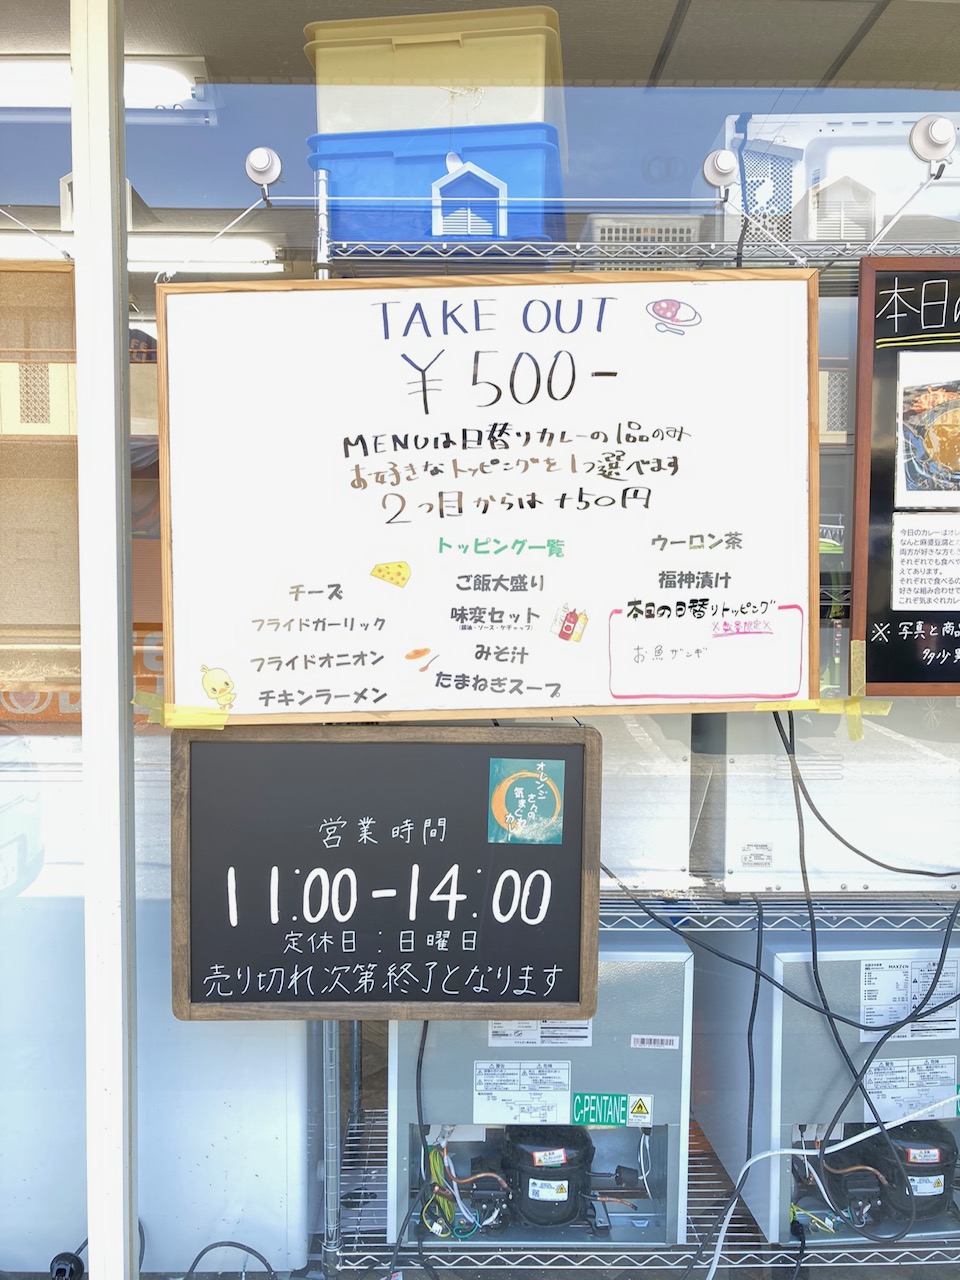 TAKE OUT
¥500-
MENUは日替りカレーの1品のみ
お好きなトッピングを1つ選べます
2つ目からは+50円
トッピング一覧
チーズ
フライドガーリック
フライドオニオン
チキンラーメン
ご飯大盛り
味変セット
(醤油・ソース・ケチャップ)
みそ汁
たまねぎスープ
ウーロン茶
福神漬け
本日の日替りトッピング
※数量限定※
お魚ザンギ
オレンジ
さんの
気まぐれ
カレー
営業時間
11:00-14:00
定休日:日曜日
売り切れ次第終了となります
本日の
今日のカレーはオレ
なんと麻婆豆腐と
両方が好きな方も
それぞれでも食べや
えてあります。
それぞれで食べるの
好きな組み合わせで
これぞ気まぐれカレー
※写真と商品
多少
MAXZEN
警告
危険
C-PENTANE